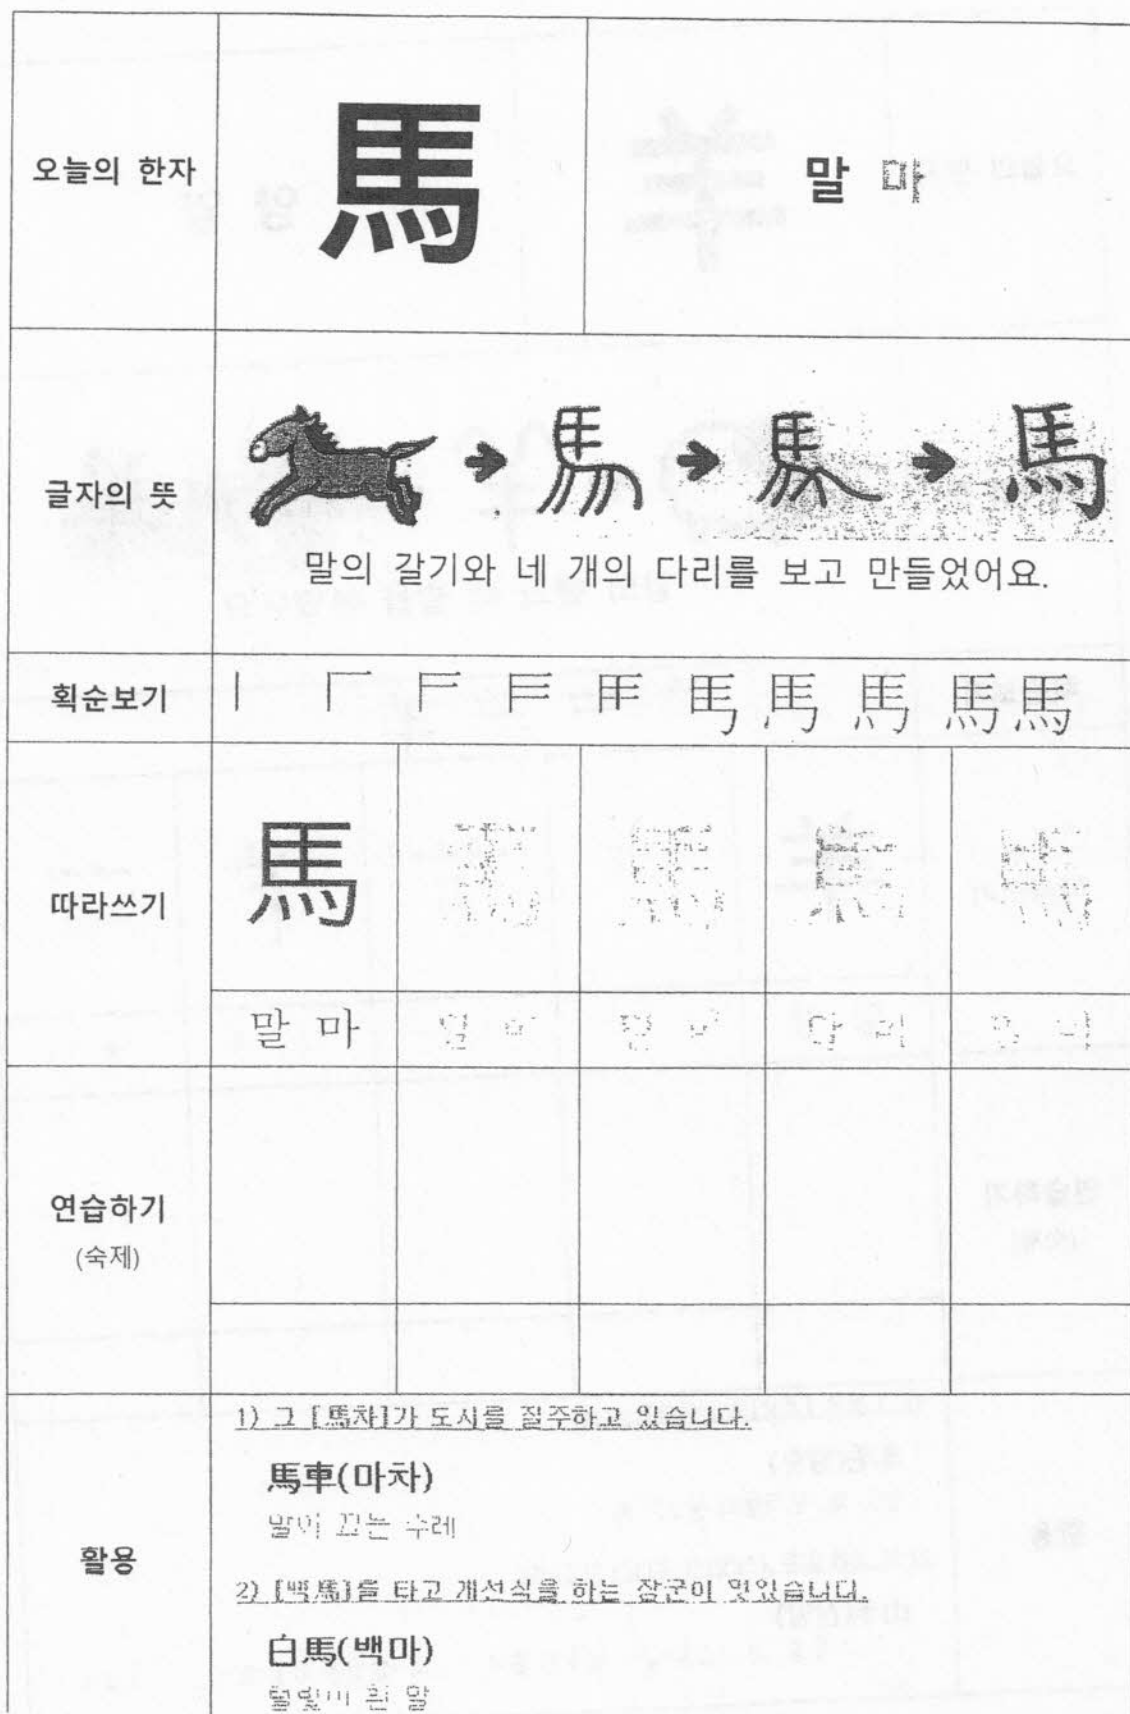 오늘의 한자
馬
말 마
글자의 뜻
馬 馬
말의 갈기와 네 개의 다리를 보고 만들었어요.
획순보기
馬 馬 馬
따라쓰기
馬
말 마
연습하기
(숙제)
활용
1) 그 [馬차]가 도시를 질주하고 있습니다.
馬車(마차)
말이 끄는 수레
2) [백馬]를 타고 개선식을 하는 장군이 멋있습니다.
白馬(백마)
털빛이 흰 말